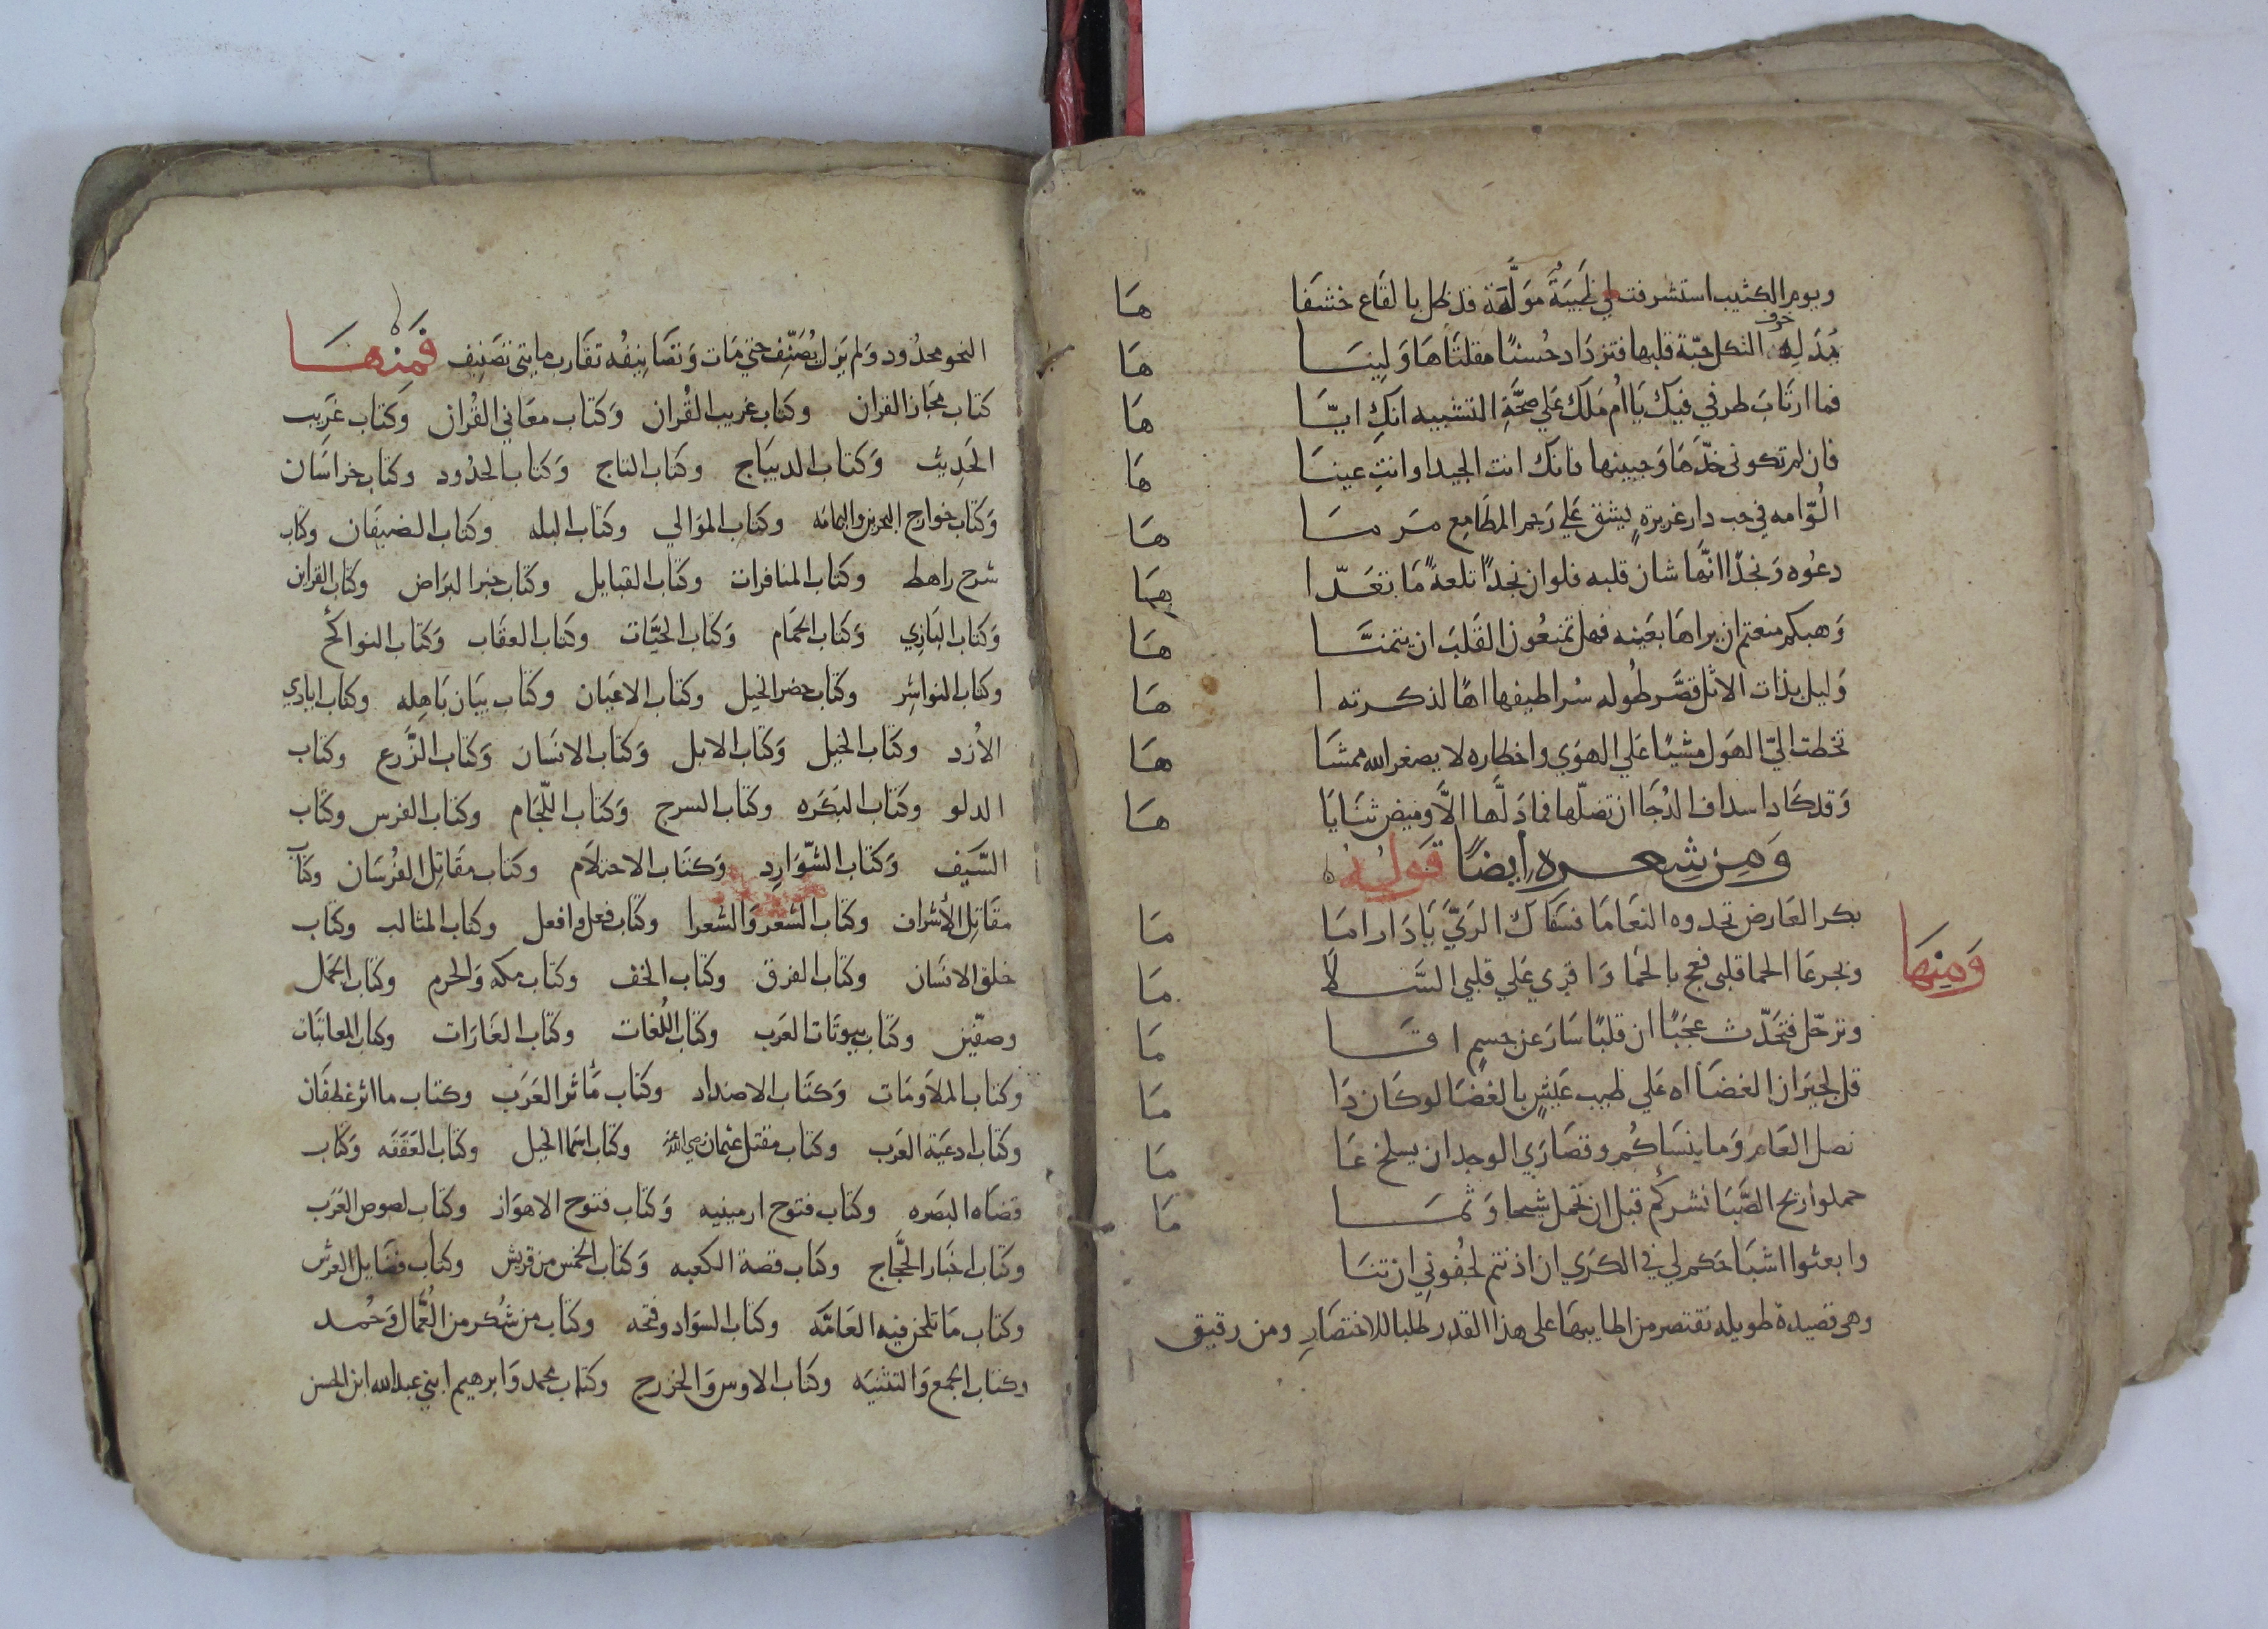 ويوم الكثيب استشرفت لي ظبية مولّهة قد ظل بالقاع خشفا هَا
خوف
يُذلّه الثكل حبّة قلبها فتزداد حُسنًا مقلتاها وَلينَا هَا
فما ارتاب طرفي فيك يا ام مَلك عَلي صحّة التشبيه انكِ ايّا هَا
فان لم تكونى خدّهَا وَجبينها فانك انت الجيد او انتِ عينَا هَا
الُوّامه في حب دار غريزةٍ يشق عَلي رَجم المطَامِع مَرمَا هَا
دعُوه وَنجدًا انّها شان قلبه فلو ان نجدًا تلعةً مَا تعَدّا هَا
وَهبكم منعتم ان يراهَا بعَينه فهل تمنعُون القَلبَ ان يتمنَّا هَا
وَليل بذات الاثل قصَّر طُوله سُرا طيفها اهًا لذكرته ا هَا
تخطت اليّ الهَول مشيًا عَلي الهوَي واخطاره لا يصغر الله ممشَا هَا
وَقد كَاد اسداف الدُجَا ان تضلّها فما دَلَّها الاَّ وميض ثنَايَا هَا
وَمِن شِعره ايضًا قَولُهُ
بكر العَارض تحدوه النعَامَا فسَقَاك الريَّ يَا دَار امَا مَا
وَمِنهَا
وبجرعَا الحما قلبى فعج بالحمَا وَاقرِي عَلي قلبي السَّلا مَا
وترحّل فتحَدّث عجَبًا ان قلبًا سَارَ عن جسمٍ اقَا مَا
قل لجيرَان الغضَا اه عَلي طيب عَيشٍ بالغضَا لو كَان دَا مَا
نصل العَام وَما ينسَاكُم وقصَارَي الوجد ان يسلخ عَا مَا
حملوا ريح الصَّبَا نشركم قبل ان تحمل شيحا وَثمَا مَا
وابعثوا اشبَاحكم لي في الكرَي ان اذنتم لجُفُونِي ان تنَا
وهى قصيدة طويله نقتصر من اطايبهَا على هذا القدر طلبا للاختصَارِ ومن رقيق
النحو محدُود وَلم يَزل يُصَنّف حتي مَات وَتصَانيفُه تقَارب مايتي تصَنيف فَمِنهَا
كتاب مجَاز القران وكتاب غريب القُران وَكتاب معَاني القُران وَكتاب غَرِيب
الحَديث وَكتاب الديبَاج وكتاب التاج وَكتاب الحدُود وكتاب خراسَان
وَكتاب خوارج البحرين واليمامَه وكتاب الموَالي وكتاب البله وكتاب الضيفَان وكتاب
شرح راهط وكتاب المنافرات وكتاب القبايل وكتاب خبر البرَاض وكتاب القراين
وَكتاب البَازِي وَكتاب الحمَام وَكتاب الحيَّات وكتاب العقَاب وَكتاب النواكح
وكتاب النواشِر وكتاب حضر الخيل وكتاب الاعيَان وكتاب بيَان بَاهِله وكتاب ايادي
الاَزد وكتاب الخيل وَكتاب الابل وَكتاب الانسَان وَكتاب الزَّرع وكتاب
الدلو وكتاب البَكرَه وكتاب السرج وَكتاب اللّجَام وكتاب الفرس وكتاب
السَّيف وَكتاب الشّوَارِد وَكتاب الاحتلاَم وكتاب مقَاتِل الفُرسَان وكتاب
مقَاتِل الأشراف وكتاب الشعر وَالشعرا وكتاب فعل وافعل وكتاب المثالب وكتاب
خلق الانسَان وكتاب الفرق وكتاب الخف وكتاب مكه وَالحرم وكتاب الجمَل
وصفّين وكتاب بيوتَات العرب وكتاب اللُغات وكتاب الغَارَات وكتاب المعاتبَات
وكتاب الملاَومَات وَكتاب الاضداد وكتاب مَآثر العَرَب وكتاب ماثر غطفَان
وكتاب ادعيَة العَرب وكتاب مقتل عثمان رضي الله عنه وكتاب اسمَا الخيل وكتاب العَقَقَه وَكتاب
قضَاه البَصَره وكتاب فتوح ارمينيه وَكتاب فتوح الاهوَاز وكتاب لصُوص العَرَب
وكتاب اخبَار الحجَّاج وكتاب قصة الكعبه وَكتاب الحمس من قريش وكتاب فضَايل العرش
وكتاب مَا تلحن فيه العَامَّه وكتاب السوَاد وفتحه وكتاب من شُكر من العُمَّال وَحُمد
وكتاب الجمع وَالتثنيَه وكتاب الاوس وَالخزرج وكتاب محمد وَابرهيم ابني عبد الله ابن الحسن